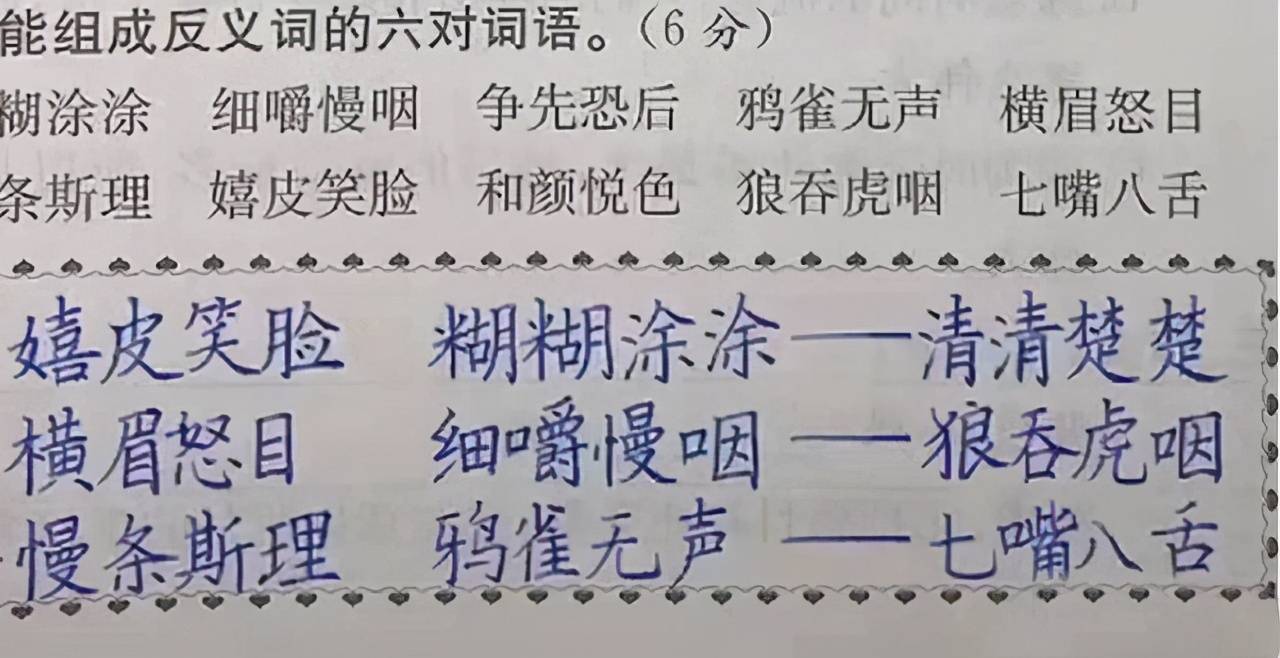 能组成反义词的六对词语。（6 分）
糊涂涂 细嚼慢咽 争先恐后 鸦雀无声 横眉怒目
条斯理 嬉皮笑脸 和颜悦色 狼吞虎咽 七嘴八舌
嬉皮笑脸 糊糊涂涂——清清楚楚
横眉怒目 细嚼慢咽——狼吞虎咽
慢条斯理 鸦雀无声——七嘴八舌